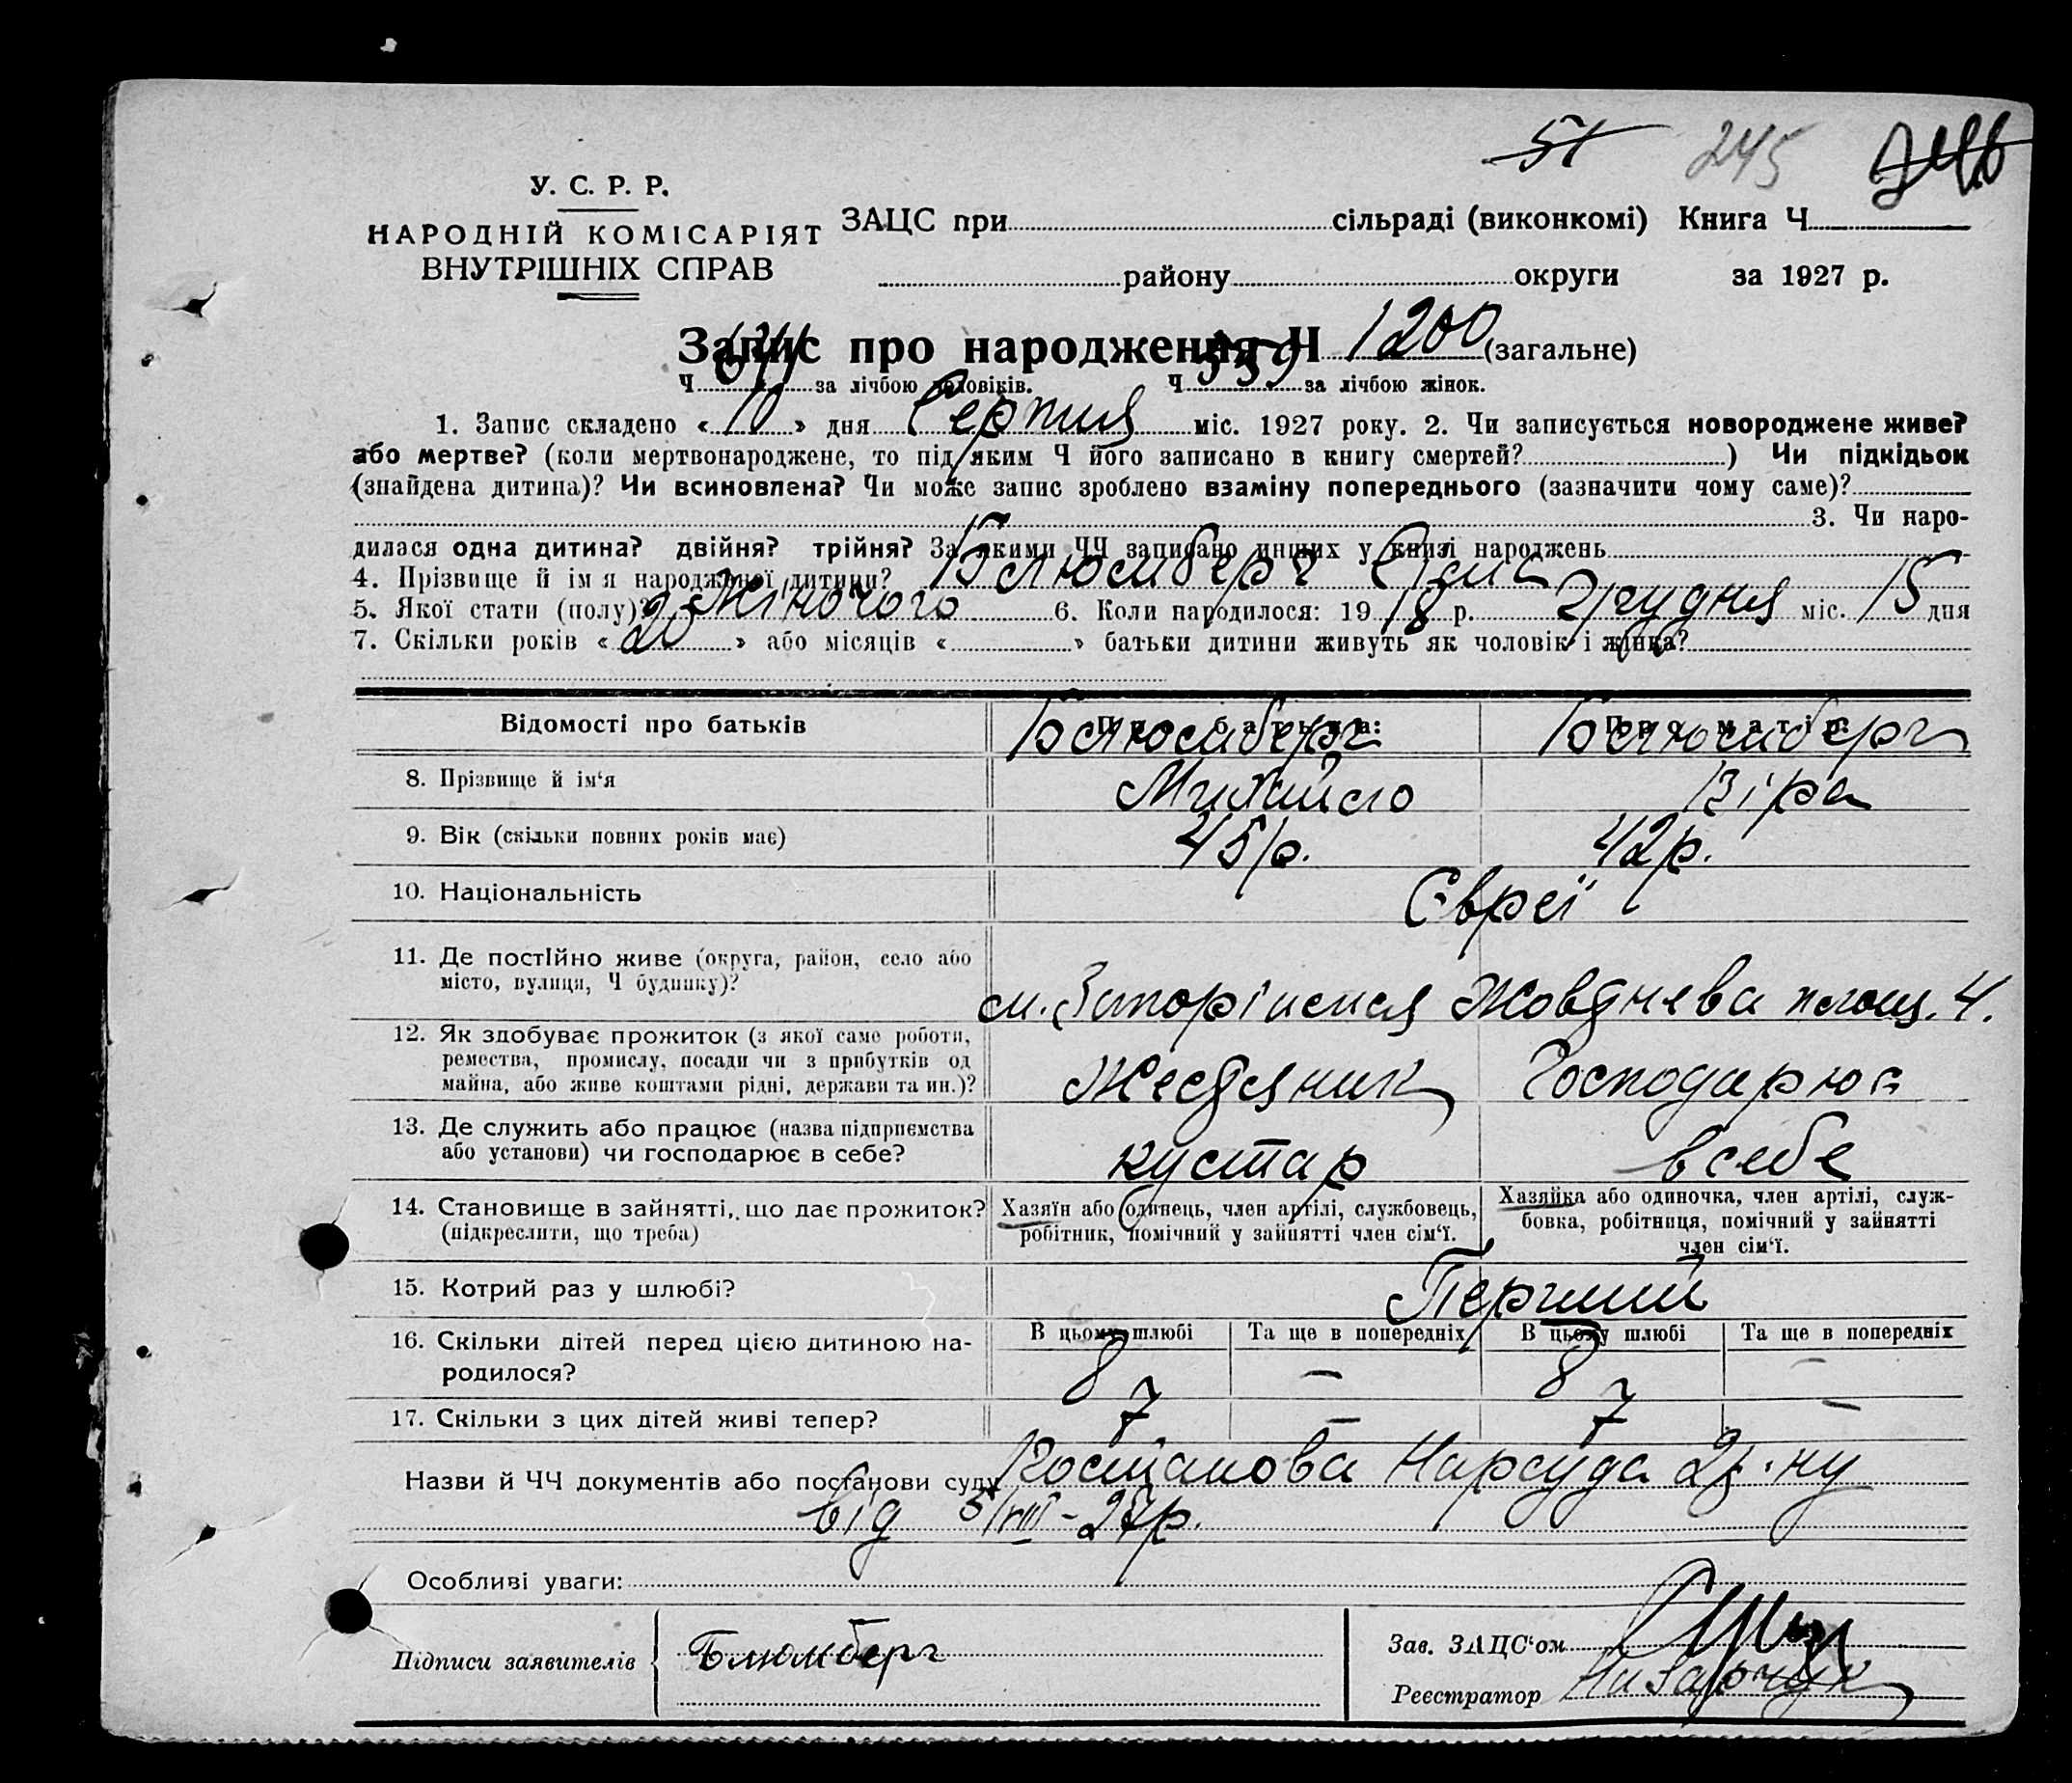 51 245 246
У. С. Р. Р.
НАРОДНІЙ КОМІСАРІЯТ
ВНУТРІШНІХ СПРАВ
ЗАЦС при сільраді (виконкомі) Книга Ч
району округи за 1927 р.
Запис про народження Ч 1200 (загальне)
Ч 641 за лічбою чоловіків. Ч 559 за лічбою жінок.
1. Запис складено « 10 » дня Серпня міс. 1927 року. 2. Чи записується новороджене живе?
або мертве? (коли мертвонароджене, то під яким Ч його записано в книгу смертей? ) Чи підкідьок
(знайдена дитина)? Чи всиновлена? Чи може запис зроблено взаміну попереднього (зазначити чому саме)?
3. Чи наро-
дилася одна дитина? двійня? трійня? За якими ЧЧ записано инших у книзі народжень
4. Прізвище й ім я народженої дитини? Блюмберг
5. Якої стати (полу)? Жіночого 6. Коли народилося: 19 18 р. Грудня міс. 15 дня
7. Скільки років « 20 » або місяців « » батьки дитини живуть як чоловік і жінка?
Відомості про батьків Про батька: Про матір:
Блюмберг Блюмберг
8. Прізвище й ім‘я Михайло Віра
9. Вік (скільки повних років має) 45 р. 42 р.
10. Національність Євреї
11. Де постійно живе (округа, район, село або
місто, вулиця, Ч будинку)? м. Запоріжжя Жовтнева площ. 4.
12. Як здобуває прожиток (з якої саме роботи,
ремества, промислу, посади чи з прибутків од
майна, або живе коштами рідні, держави та ин.)? Жестяник Господарює
13. Де служить або працює (назва підприємства
або установи) чи господарює в себе? кустар в себе
14. Становище в зайнятті, що дає прожиток?
(підкреслити, що треба)
Хазяїн або одинець, член артілі, службовець,
робітник, помічний у зайнятті член сім‘ї.
Хазяйка або одиночка, член артілі, служ-
бовка, робітниця, помічний у зайнятті
член сім‘ї.
15. Котрий раз у шлюбі? Перший
16. Скільки дітей перед цією дитиною на-
родилося?
В цьому шлюбі Та ще в попередніх В цьому шлюбі Та ще в попередніх
8 — 8 —
17. Скільки з цих дітей живі тепер? 7 — 7 —
Назви й ЧЧ документів або постанови суду Постанова Нарсуда 2
від 5/VIII - 27 р.
Особливі уваги:
Підписи заявителів Блюмберг
Зав. ЗАЦС‘ом
Реєстратор Назарчук